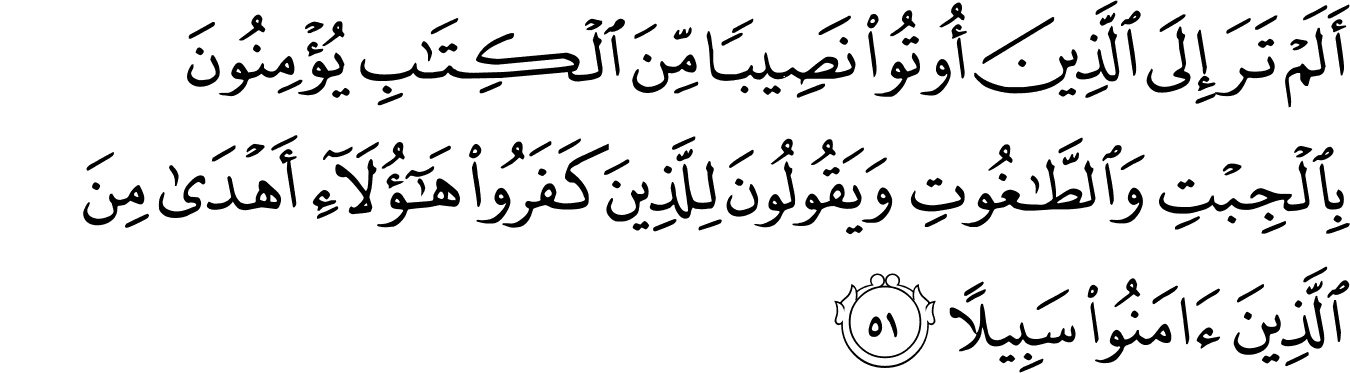 أَلَمۡ تَرَ إِلَى ٱلَّذِينَ أُوتُواْ نَصِيبٗا مِّنَ ٱلۡكِتَٰبِ يُؤۡمِنُونَ
بِٱلۡجِبۡتِ وَٱلطَّٰغُوتِ وَيَقُولُونَ لِلَّذِينَ كَفَرُواْ هَٰٓؤُلَآءِ أَهۡدَىٰ مِنَ
ٱلَّذِينَ ءَامَنُواْ سَبِيلًا ٥١